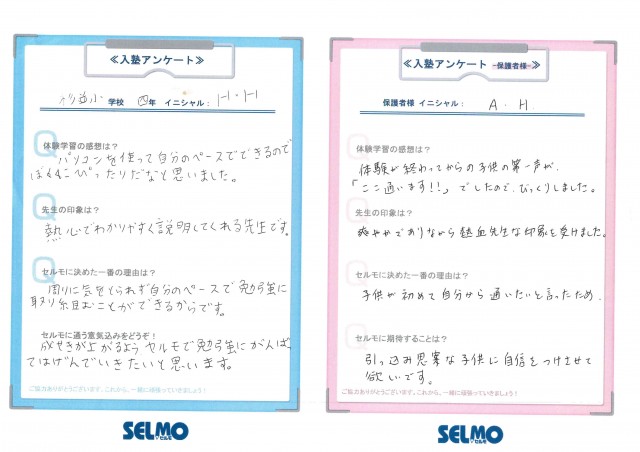 ≪入塾アンケート≫
学校 四年 イニシャル： H・H
体験学習の感想は？
パソコンを使って自分のペースでできるので
ぼくにぴったりだなと思いました。
先生の印象は？
熱心でわかりやすく説明してくれる先生です。
セルモに決めた一番の理由は？
周りに気をとられず自分のペースで勉強に
取り組むことができるからです。
セルモに通う意気込みをどうぞ！
成せきが上がるようセルモで勉強にがんば
ってはげんでいきたいと思います。
ご協力ありがとうございます。これから、一緒に頑張っていきましょう！
SELMO
セルモ
≪入塾アンケート -保護者様-≫
保護者様 イニシャル： A. H.
体験学習の感想は？
体験が終わってからの子供の第一声が、
「ここ通います!!」でしたので、びっくりしました。
先生の印象は？
爽やかでありながら熱血先生な印象を受けました。
セルモに決めた一番の理由は？
子供が初めて自分から通いたいと言ったため.
セルモに期待することは？
引っ込み思案な子供に自信をつけさせて
欲しいです。
ご協力ありがとうございます。これから、一緒に頑張っていきましょう！
SELMO
セルモ